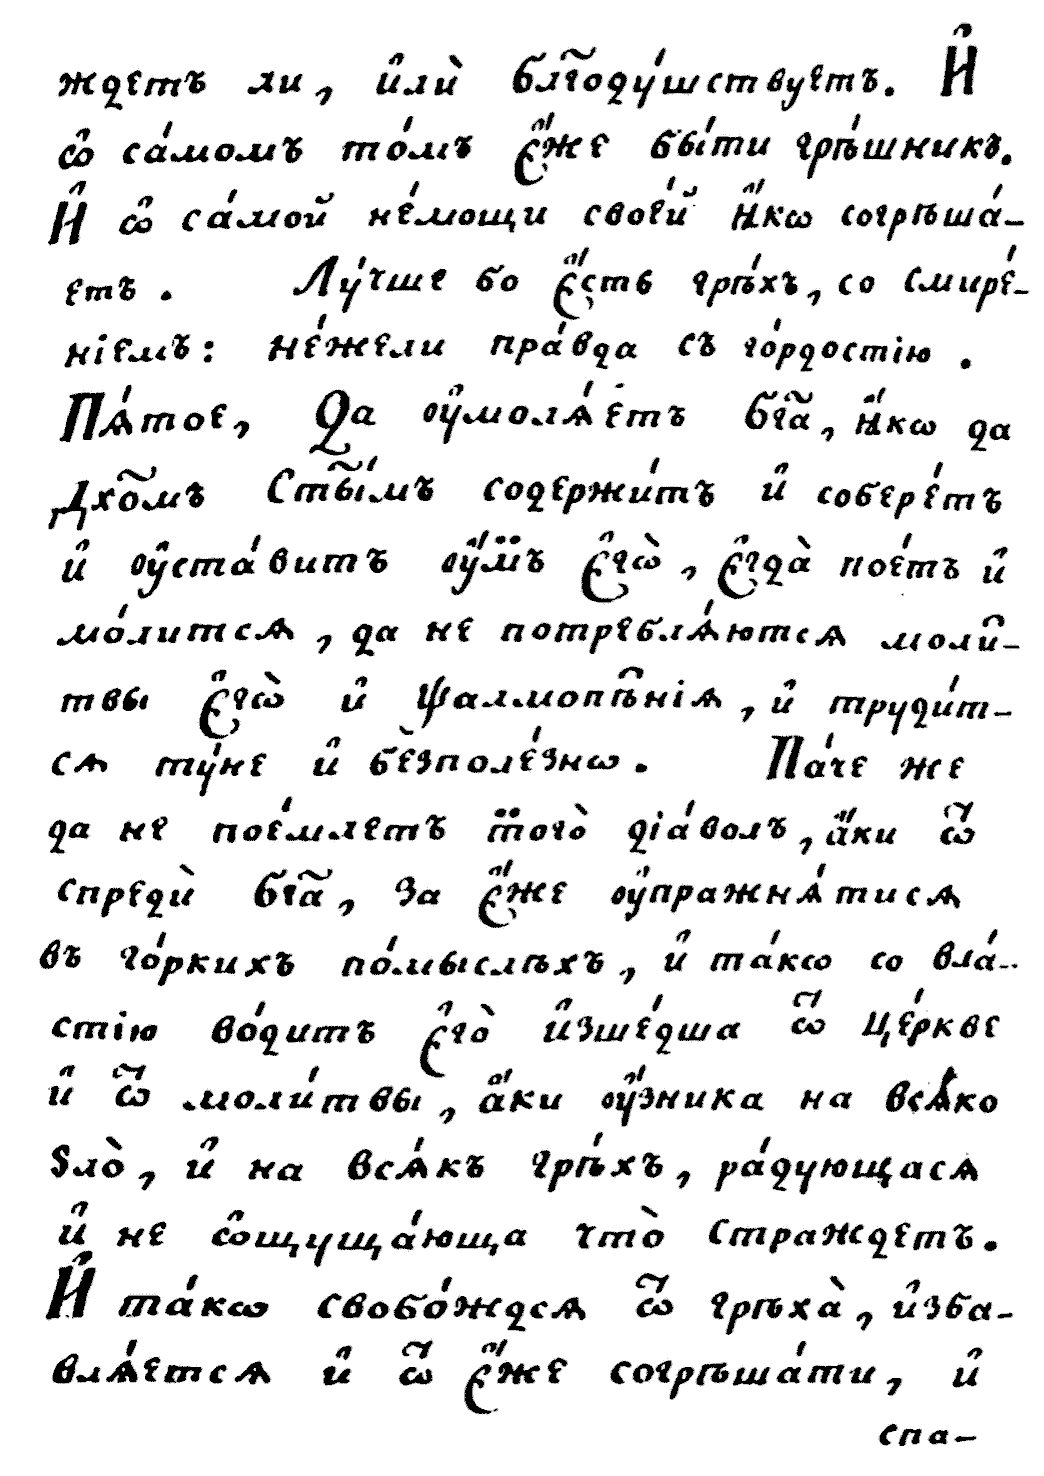 ждетъ ли, и҆лѝ бл҃годꙋ́шствꙋетъ. И҆
ѡ҆ са́момъ то́мъ є҆́же бы́ти грѣ́шникъ.
И҆ ѡ҆ са́мой не́мощи свое́й ꙗ҆́кѡ согрѣша́-
етъ. Лꙋ́чше бо є҆́сть грѣ́хъ, со смире́-
ніемъ: не́жели пра́вда съ го́рдостїю.
Пѧ́тое, Да ᲂу҆молѧ́етъ бг҃а, ꙗ҆́кѡ да
Дх҃омъ Ст҃ы́мъ содержи́тъ и҆ собере́тъ
и҆ ᲂу҆ста́витъ ᲂу҆́мъ є҆гѡ̀, є҆гда̀ пое́тъ и҆
мо́литсѧ, да не потреблѧ́ютсѧ моли̑-
твы є҆гѡ̀ и҆ ѱалмопѣ̑нїѧ, и҆ трꙋди́т-
сѧ тꙋ́не и҆ безполе́знѡ. Па́че же
да не пое́млетъ того̀ дїа́волъ, а҆́ки ѿ
спредѝ бг҃а, за є҆́же ᲂу҆пражнѧ́тисѧ
въ го́ркихъ по́мыслѣхъ, и҆ та́кѡ со вла́-
стїю во́дитъ є҆го̀ и҆зше́дша ѿ це́ркве
и҆ ѿ моли́твы, а҆́ки ᲂу҆́зника на всѧ́ко
ѕло̀, и҆ на всѧ́къ грѣ́хъ, ра́дꙋющасѧ
и҆ не ѡ҆щꙋща́юща что̀ страждетъ.
И҆ та́кѡ свобо́ждсѧ ѿ грѣха̀, и҆зба-
влѧ́етсѧ и҆ ѿ є҆́же согрѣша́ти, и҆
спа-